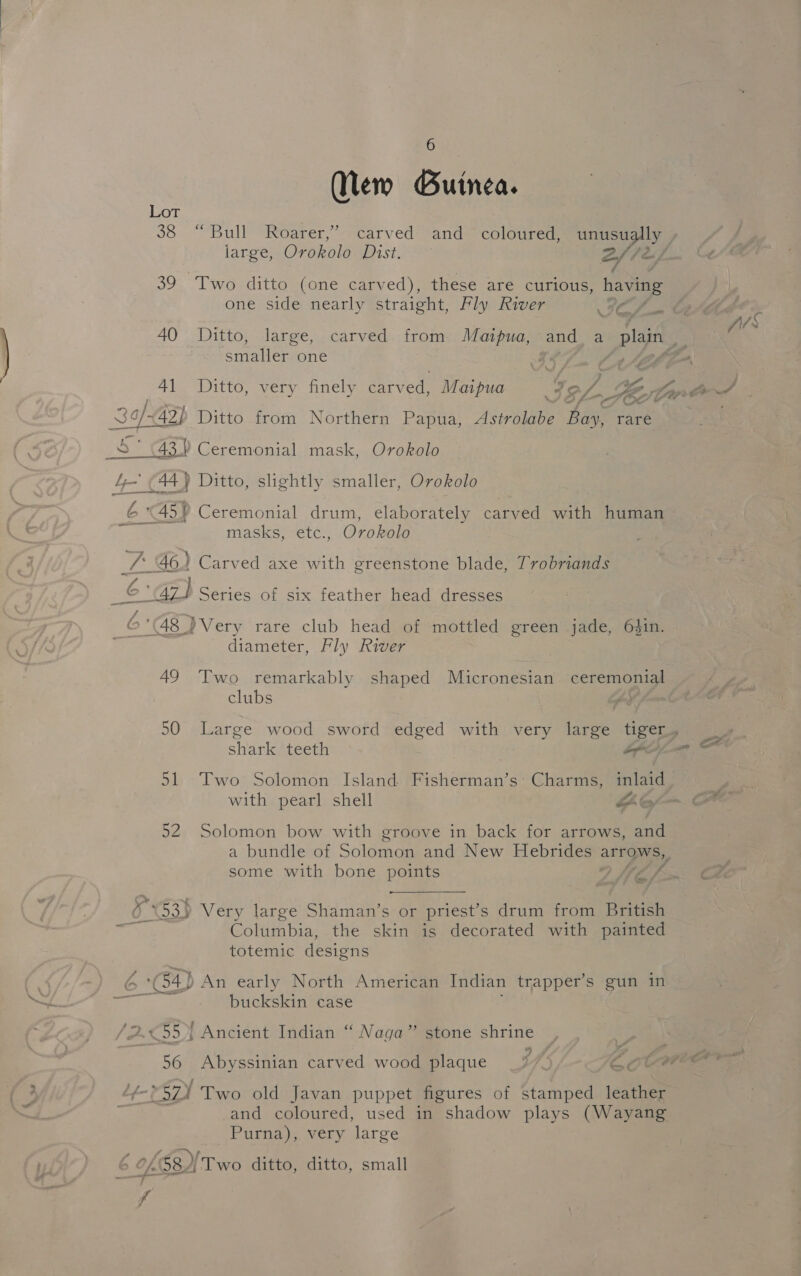 6
New Guinea.
Lot
38 “Bull Roarer,” carved and coloured, unusually
large, Orokolo Dist.
39 Two ditto (one carved), these are curious, having
one side nearly straight, Fly River
40 Ditto, large, carved from Maipua, and a plain
smaller one
41 Ditto, very finely carved, Maipua
(42) Ditto from Northern Papua, Astrolabe Bay, rare
(43) Ceremonial mask, Orokolo
(44) Ditto, slightly smaller, Orokolo
6 (45) Ceremonial drum, elaborately carved with human
masks, etc., Orokolo
(46) Carved axe with greenstone blade, Trobriands
6 (47) Series of six feather head dresses
6 (48) Very rare club head of mottled green jade, 6½in.
diameter, Fly River
49 Two remarkably shaped Micronesian ceremonial
clubs
50 Large wood sword edged with very large tiger
shark teeth
51 Two Solomon Island Fisherman’s Charms, inlaid
with pearl shell
52 Solomon bow with groove in back for arrows, and
a bundle of Solomon and New Hebrides arrows,
some with bone points
(53) Very large Shaman’s or priest’s drum from British
Columbia, the skin is decorated with painted
totemic designs
6 (54) An early North American Indian trapper’s gun in
buckskin case
(55) Ancient Indian “Naga” stone shrine
56 Abyssinian carved wood plaque
(57) Two old Javan puppet figures of stamped leather
and coloured, used in shadow plays (Wayang
Purna), very large
(58) Two ditto, ditto, small